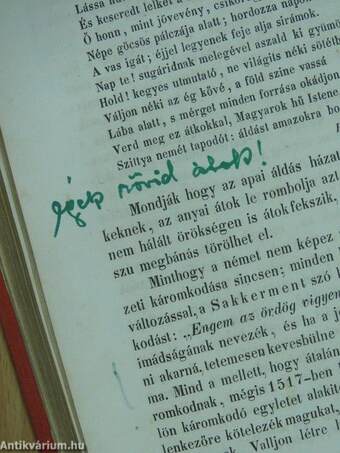 Lássa
És keseredt lelket a
Ó honn, mint jövevény, csikor
Népe göcsös pálczája alatt; hordozza napon
A vas igát; éjjel legyenek feje alja sirámok.
Nap te! sugáridnak melegével aszald ki gyümö
Hold! kegyes utmutató, ne világits néki sötétb
Váljon néki az ég kővé, a föld szine vassá
Lába alatt, s mérget minden forrása okádjon
Verd meg ez átkokkal, Magyarok hű Istene
Szittya nemét tapodót: áldást amazokra bo
rövid alak!
Mondják hogy az apai áldás házat
keknek, az anyai átok le rombolja azt
nem hálált örökségen is átok fekszik,
szu megbánás törölhet el.
Minthogy a német nem képez
zeti káromkodása sincsen; minden
változással, a Sakkerment szó
kodást: „Engem az ördög vigyen
imádságának nevezék, és ha a j
ni akarná, tetemesen kevesbülne
ma. Mind a mellett, hogy átalán
romkodnak, mégis 1517-ben
lön káromkodó egyletet alakit
lenkezőre kötelezék magukat,
Valljon létre
Antikvárium.hu